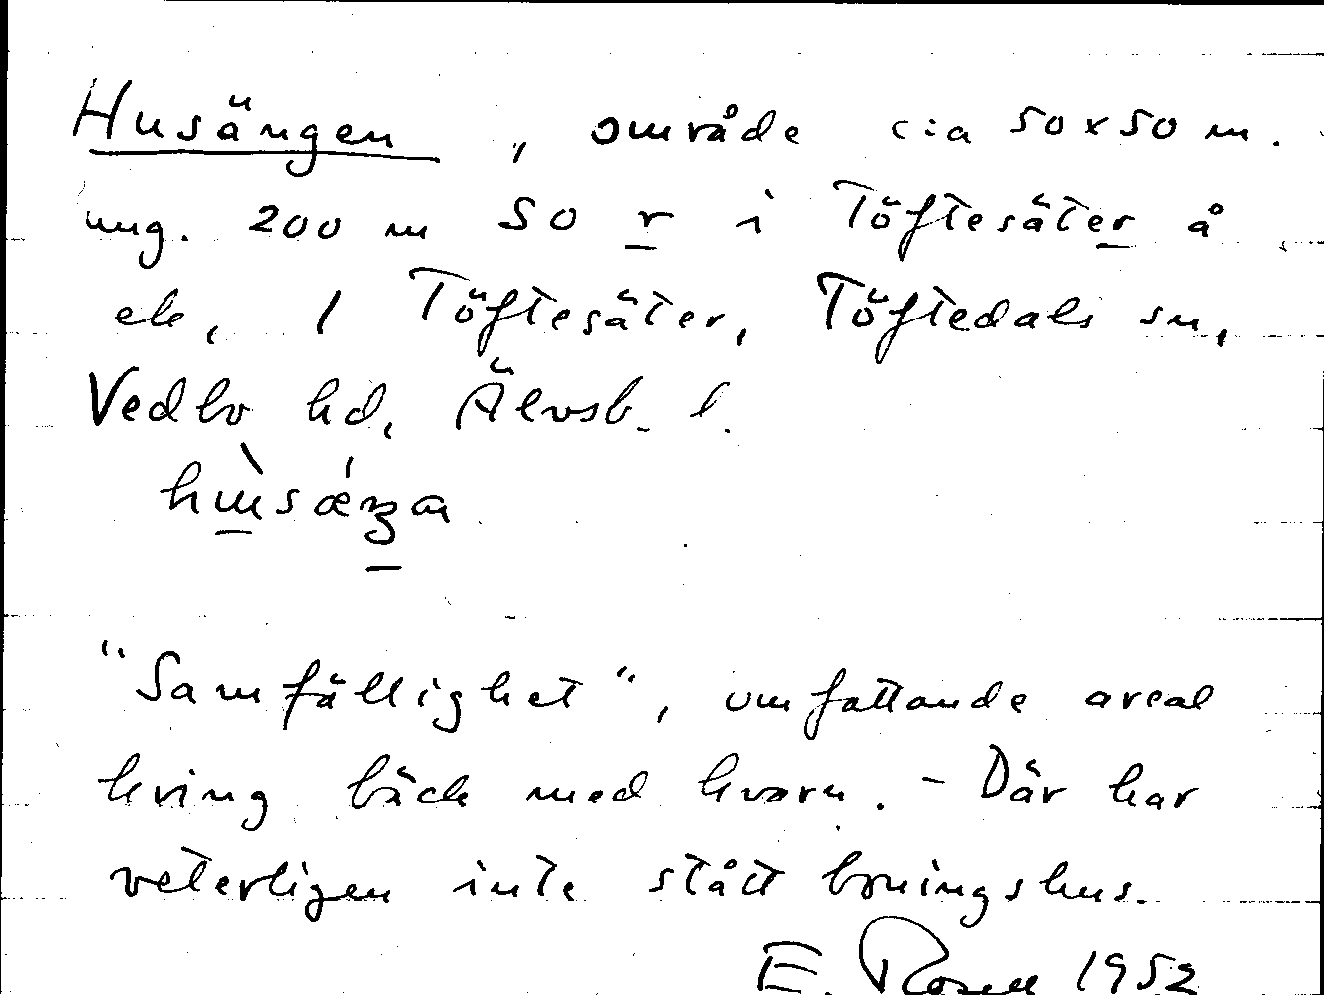 Husängen, område c:a 50x50 m.
ung. 200 m SO r i Töftesäter å
ek, 1 Töftesäter, Töftedals sn,
Vedbo hd, Älvsb. l.
"Samfällighet", omfattande areal
kring bäck med kvarn. - Där har
veterligen inte stått boningshus.
E. Rosell 1952